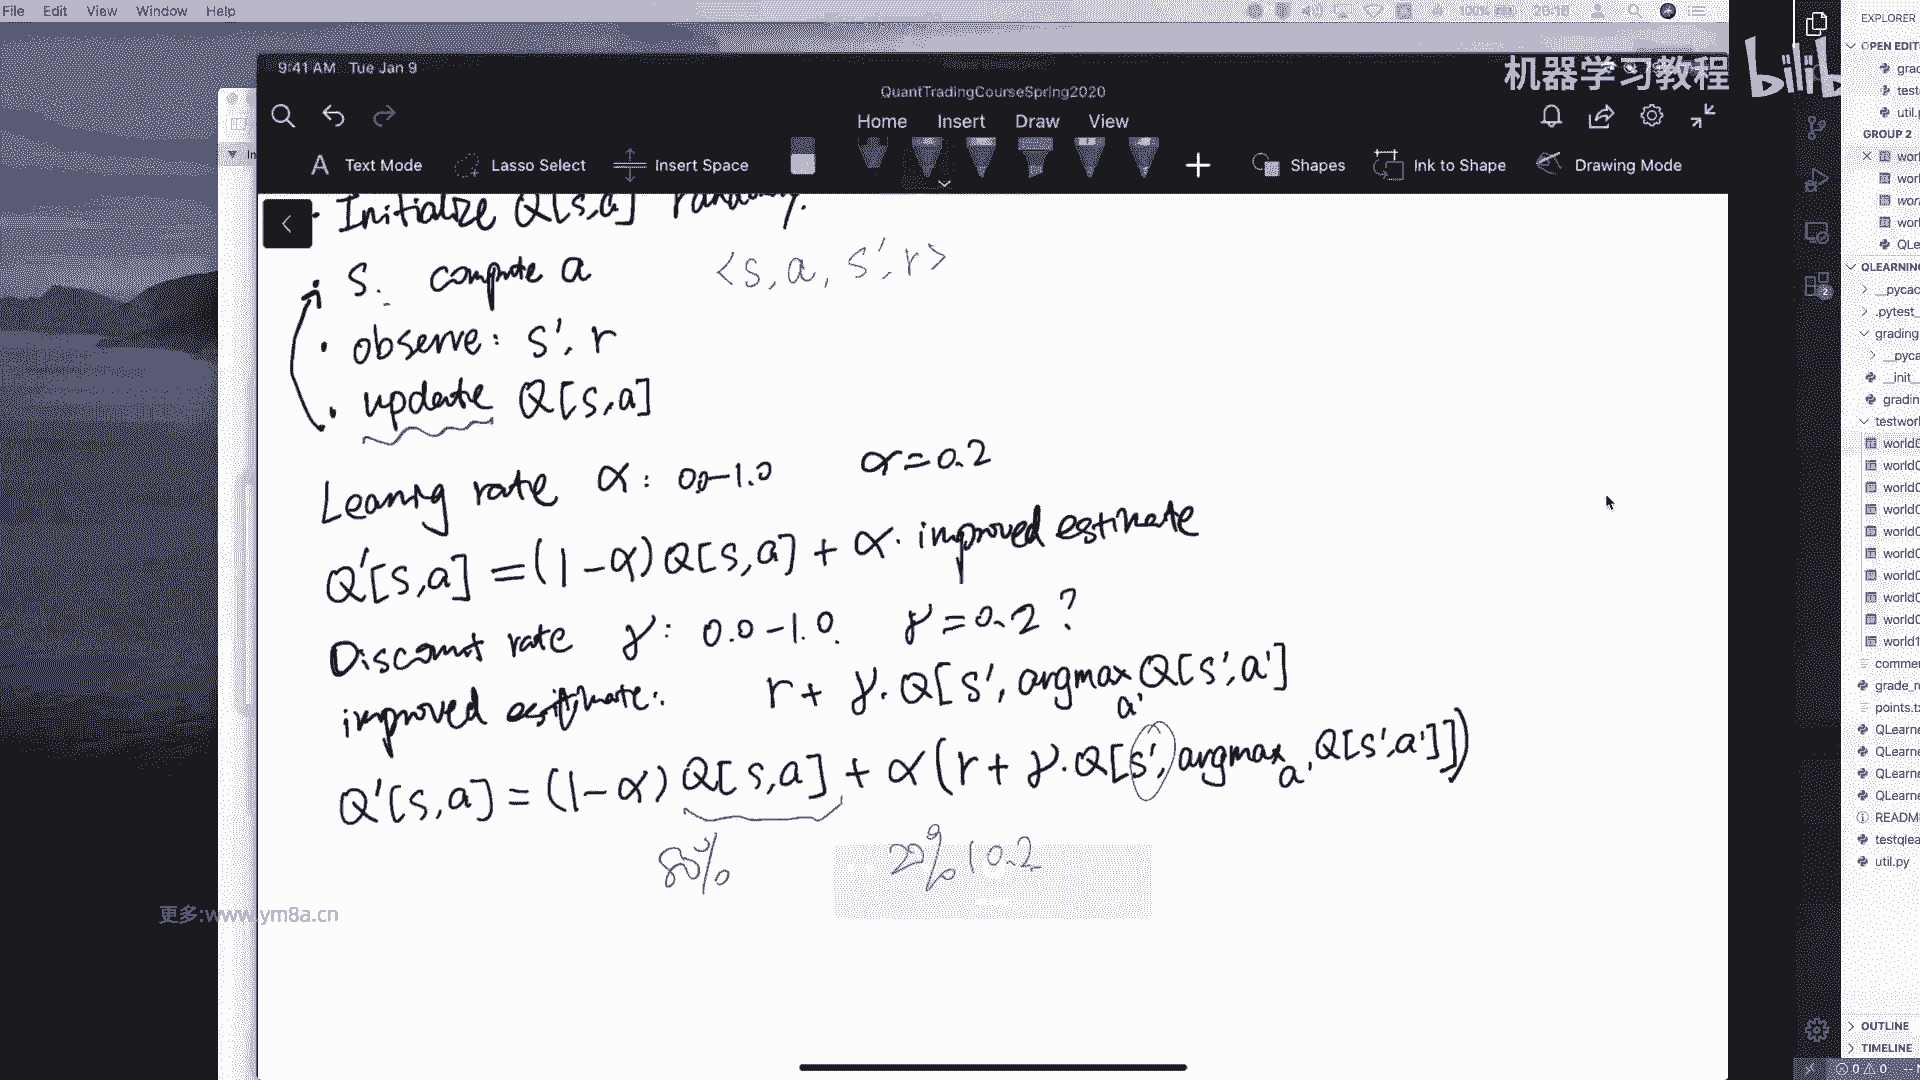 File Edit View Window Help
100% 26:16
9:41 AM Tue Jan 9
QuantTradingCourseSpring2020
机器学习教程
bilib
Home Insert Draw View
A Text Mode Lasso Select Insert Space Shapes Ink to Shape Drawing Mode
· Initialize Q[s,a] randomly.
· S. compute a <s, a, s', r>
· observe: s', r
· update Q[s,a]
Learning rate α: 0.0-1.0 α=0.2
Q'[s,a] = (1-α) Q[s,a] + α· improved estimate
Discount rate γ: 0.0-1.0. γ=0.2 ?
improved estimate: r + γ·Q[s', argmax Q[s',a']
a'
Q'[s,a] = (1-α) Q[s,a] + α(r + γ·Q[s', argmax a' Q[s',a']])
80% 20% | 0.2
更多:www.ym8a.cn
EXPLORER
OPEN EDIT
grad
test
util.p
GROUP 2
worl
worl
worl
worl
QLea
QLEARNING
__pycac
.pytest_
grading
__pyca
__init__
gradin
testworl
world0
world0
world0
world0
world0
world0
world0
world0
world0
world1
comme
grade_r
points.tx
QLearne
QLearne
QLearne
QLearne
README
testqlea
util.py
OUTLINE
TIMELINE
0 0